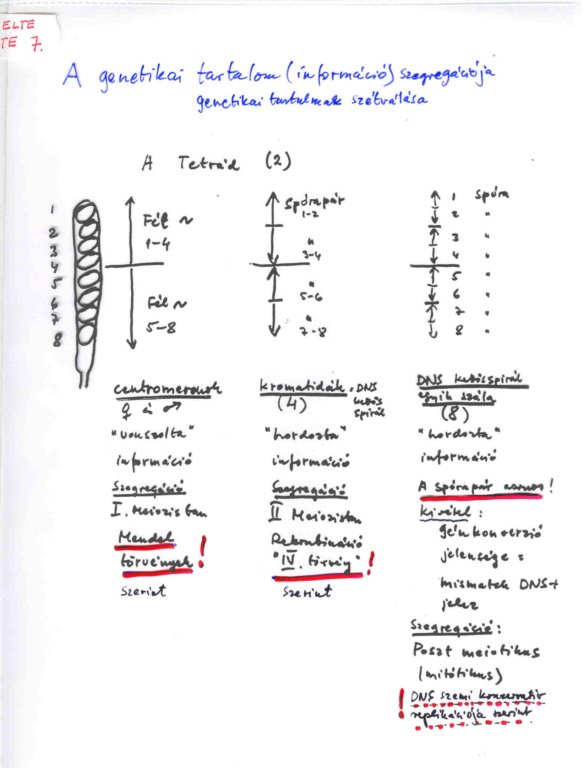 ELTE
TE 7.
A genetikai tartalom (információ) szegregációja
genetikai tartalmak szétválása
A Tetrád (2)
1
2
3
4
5
6
7
8
Fél ~
1-4
Fél ~
5-8
Spórapár
1-2
"
3-4
"
5-6
"
7-8
1 spóra
2 "
3 "
4 "
5 "
6 "
7 "
8 "
centromeronok
♀ és ♂
"vonszolta"
információ
Szegregáció
I. Meiozisban
Mendel
törvények !
szerint
kromatidák = DNS
kettős
spirál
(4)
"hordozta"
információ
Szegregáció
II Meiozisban
Rekombináció
"IV. törvény" !
szerint
DNS kettősspirál
egyik szála
(8)
"hordozta"
információ
A spórapár azonos!
Kivétel:
génkonverzió
jelensége =
mismatch DNS-t
jelez
Szegregáció:
Poszt meiotikus
(mitótikus)
! DNS szemi konzervatív
replikációja szerint